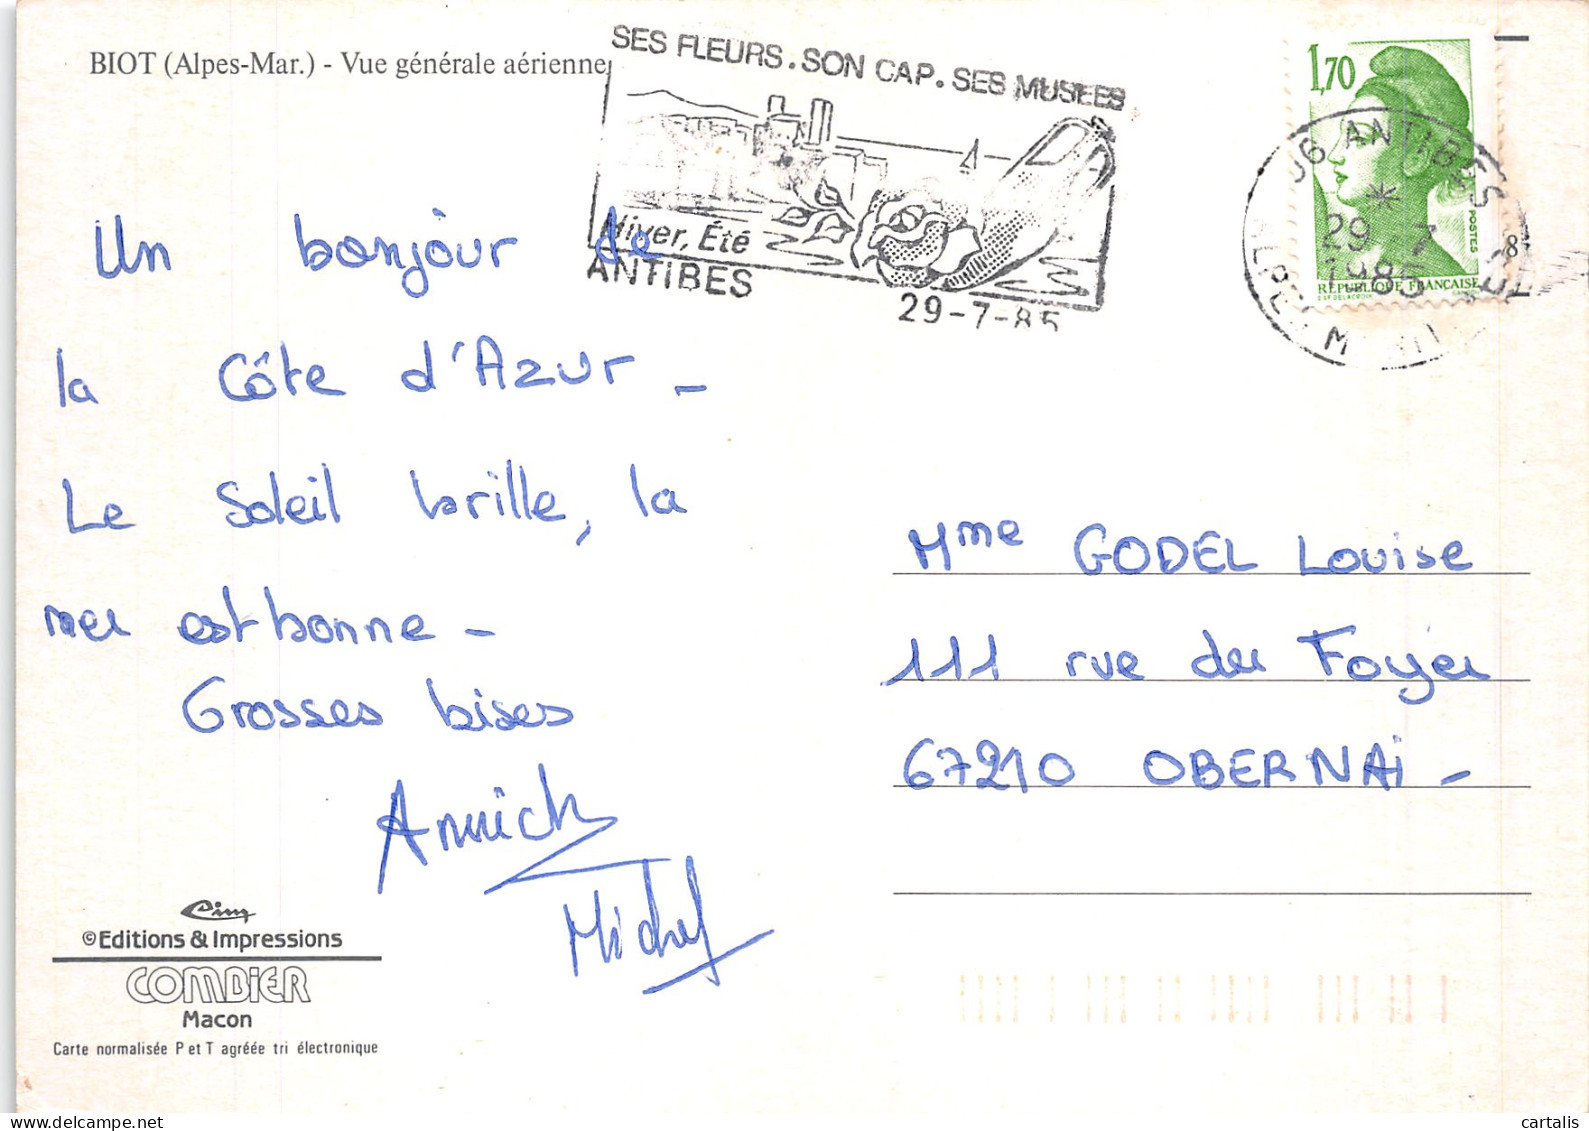 BIOT (Alpes-Mar.) - Vue générale aérienne
SES FLEURS. SON CAP. SES MUSEES
Hiver, Été
ANTIBES
29-7-85
1,70
POSTES
RÉPUBLIQUE FRANÇAISE
06 ANTIBES
29 - 7
1985
Un bonjour de
la Côte d'Azur -
Le Soleil brille, la
mer est bonne -
Grosses bises
Annick
Michel
Mme GODEL Louise
111 rue du Foyer
67210 OBERNAi -
Cim
©Editions & Impressions
COMBIER
Macon
Carte normalisée P et T agréée tri électronique
cartalis